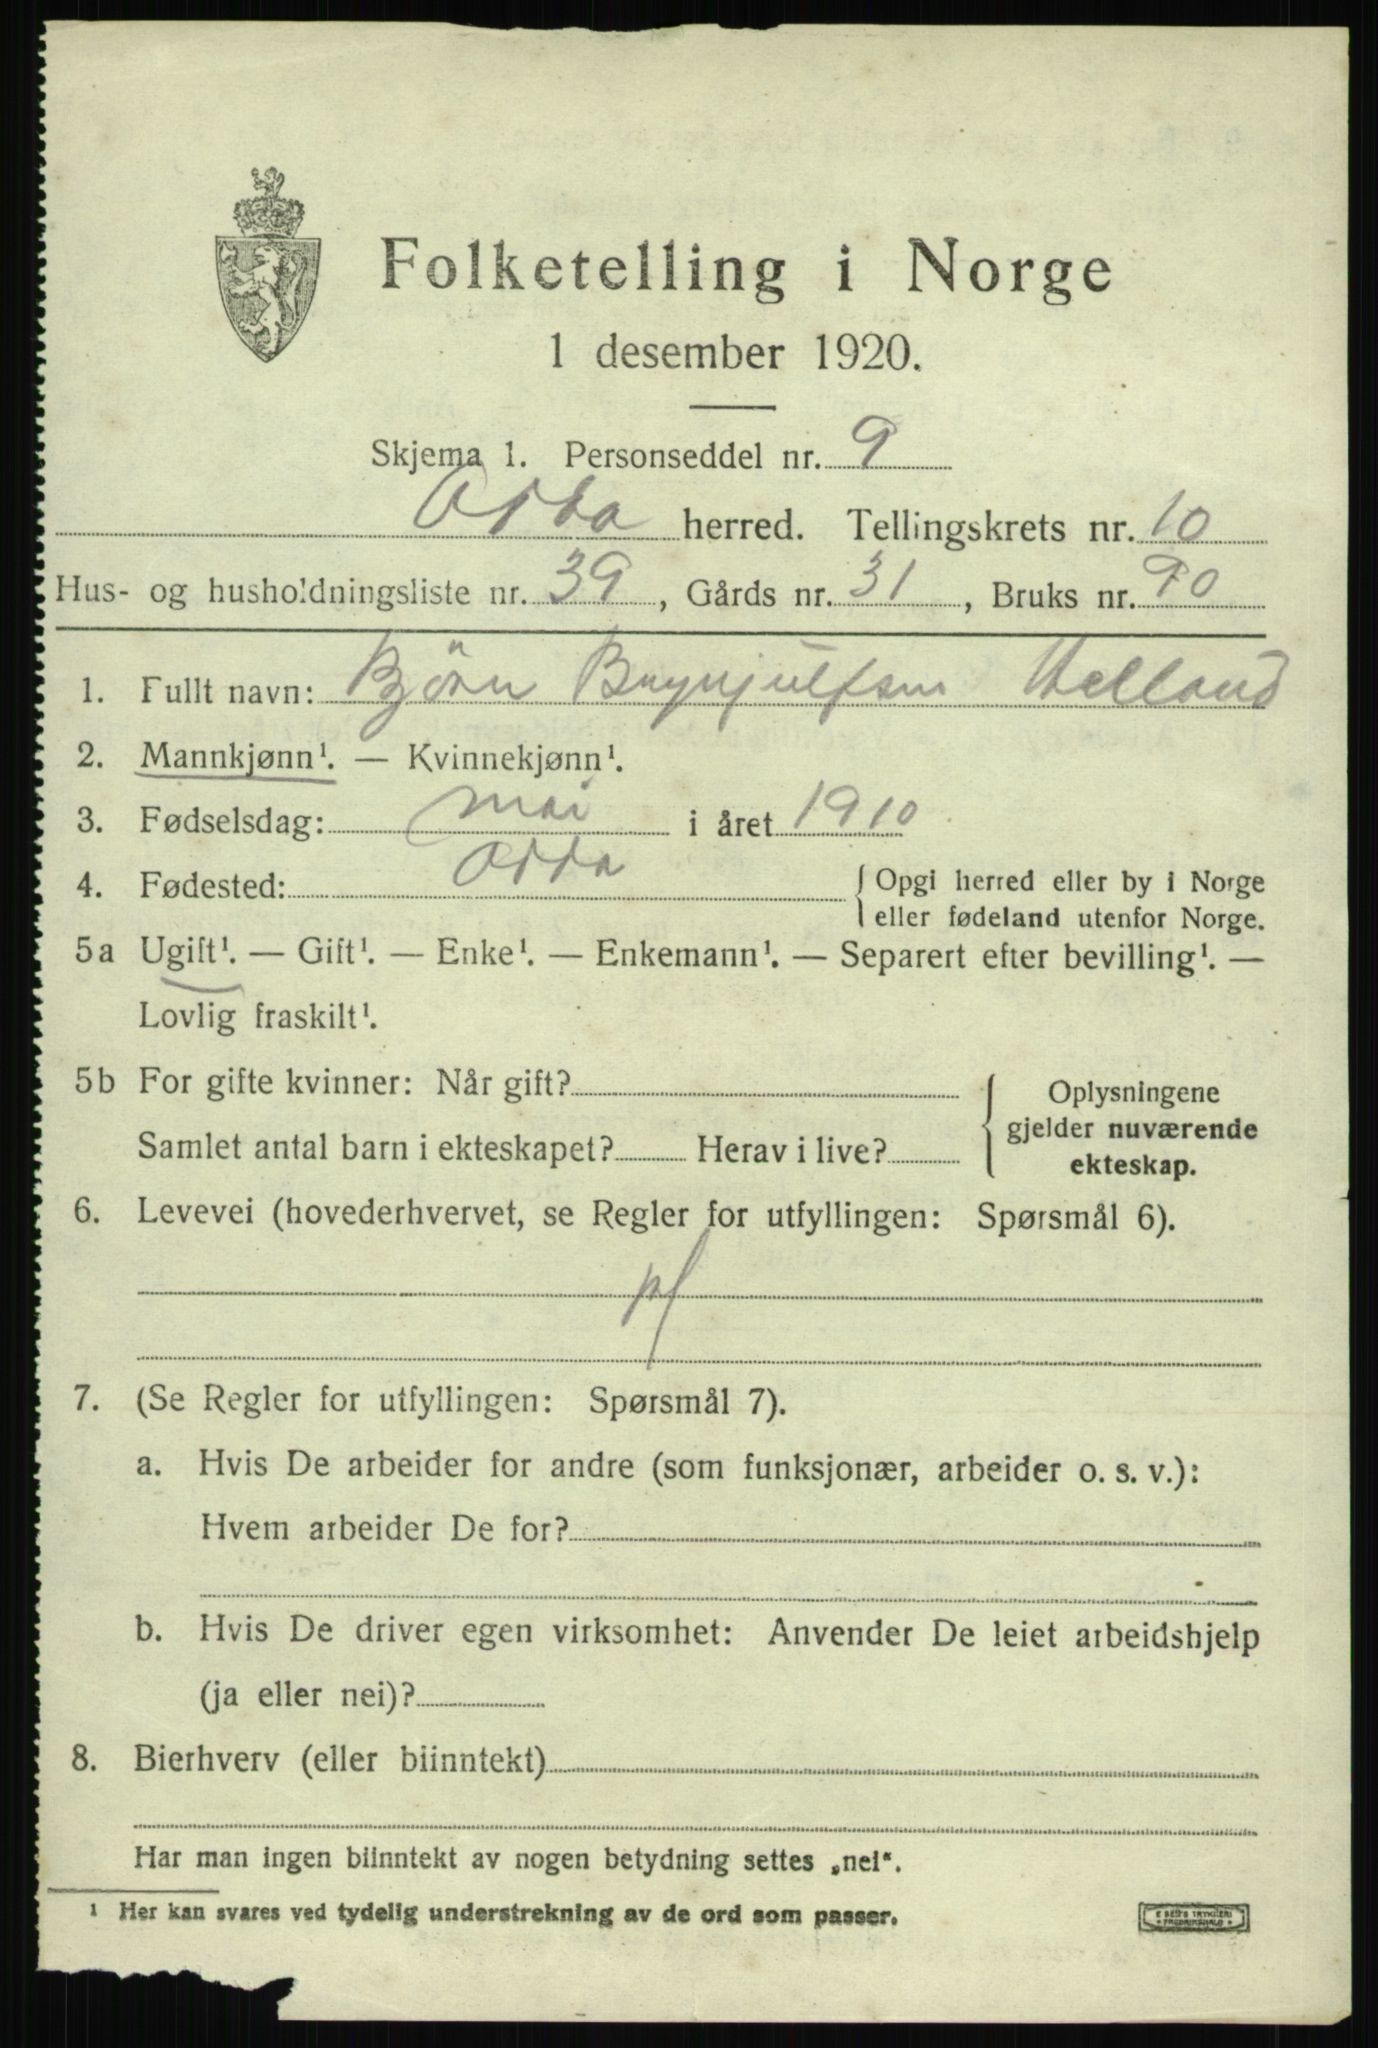 Folketelling i Norge
1 desember 1920.
Skjema 1. Personseddel nr. 9
Odda herred. Tellingskrets nr. 10
Hus- og husholdningsliste nr. 39, Gårds nr. 31, Bruks nr. 90
1. Fullt navn: Bjørn Brynjulfsen Helland
2. Mannkjønn¹. — Kvinnekjønn¹.
3. Fødselsdag: mai i året 1910
4. Fødested: Odda { Opgi herred eller by i Norge
eller fødeland utenfor Norge.
5a Ugift¹. — Gift¹. — Enke¹. — Enkemann¹. — Separert efter bevilling¹. —
Lovlig fraskilt¹.
5b For gifte kvinner: Når gift? { Oplysningene
gjelder nuværende
Samlet antal barn i ekteskapet? Herav i live? ekteskap.
6. Levevei (hovederhvervet, se Regler for utfyllingen: Spørsmål 6).
7. (Se Regler for utfyllingen: Spørsmål 7).
a. Hvis De arbeider for andre (som funksjonær, arbeider o. s. v.):
Hvem arbeider De for?
b. Hvis De driver egen virksomhet: Anvender De leiet arbeidshjelp
(ja eller nei)?
8. Bierhverv (eller biinntekt)
Har man ingen biinntekt av nogen betydning settes „nei“.
¹ Her kan svares ved tydelig understrekning av de ord som passer.
E SEM'S TRYKKERI
FREDRIKSHALD